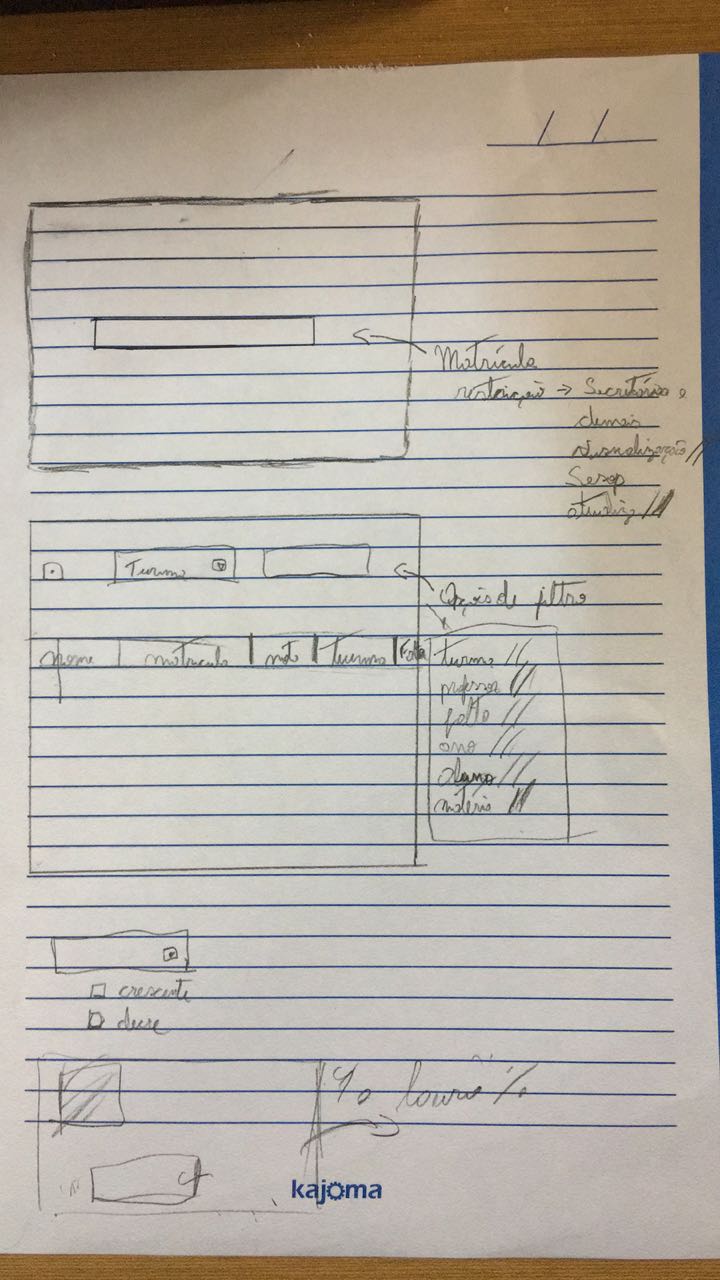 / /
Matrícula
restrição → Secretária e
demais
visualização //
Sesop
atualiz //
Turma
Opções de filtro
nome matricula nota turma Falta
turma //
professor //
falta //
ano //
aluno //
matéria //
crescente
decre
%
kajoma